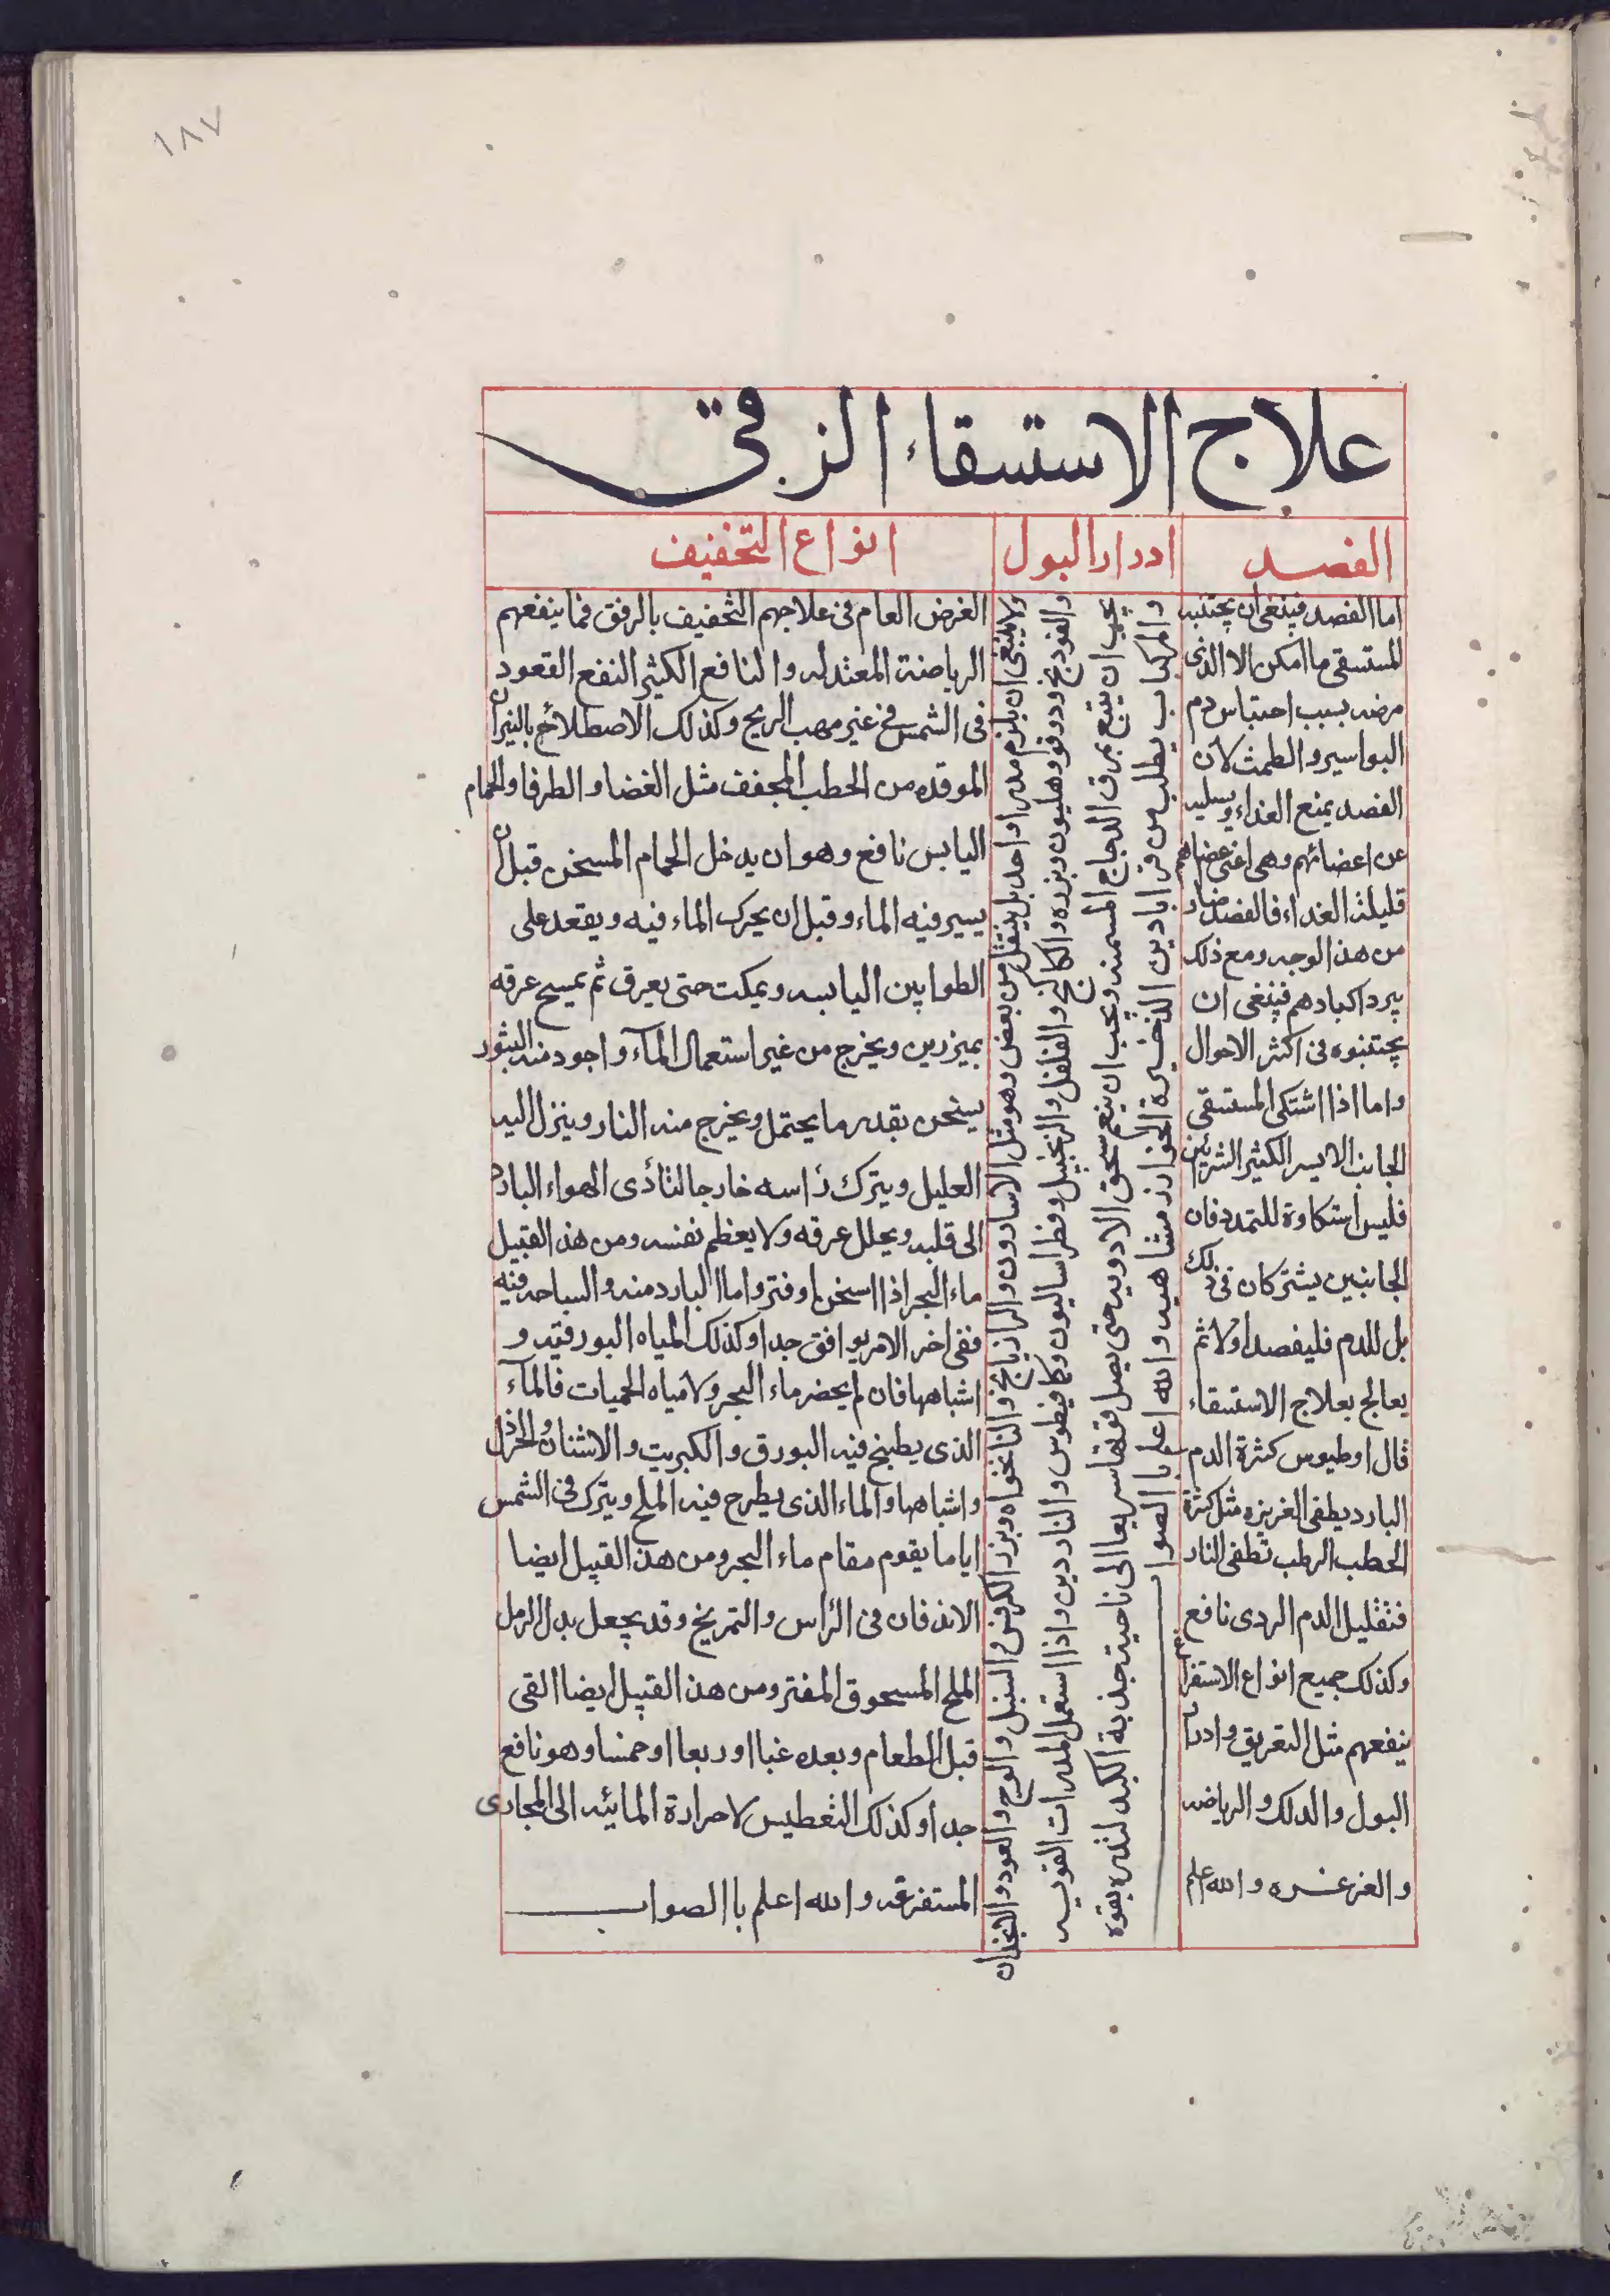 ١٨٧
علاج الاستسقاء الزقى
الفصد
ادرار البول
انواع التخفيف
اما الفصد فينبغى ان يجتنبه
المستسقى ما امكن الا الذى
مرضه بسبب احتباس دم
البواسير و الطمث لان
الفصد يمنع الغذاء ويسلبه
عن اعضائهم وهى اعنى اعضاهم
قليلة الغذاء فالفصد ضار
من هذا الوجه ومع ذلك
يبرد اكبادهم فينبغى ان
يجتنبوه فى اكثر الاحوال
واما اذا اشتكى المستسقى
الجانب الايسر الكثير الشرايين
فليس اشتكاوه للتمدد فان
الجانبين يشتركان فى ذلك
بل للدم فليفصد اولا ثم
يعالج بعلاج الاستسقاء
قال اوطيوس كثرة الدم
البارد يطفى الغريزه مثل كثرة
الحطب الرطب تطفى النار
فتقليل الدم الردى نافع
وكذلك جميع انواع الاستفراغ
ينفعهم مثل التعريق وادرار
البول والدلك والرياضه
والغرغره والله اعلم
ولا ينبغى ان يلزم مدرا واحد بل ينتقل من بعض وهو مثل الاسارون والرازيانج والنانخواه وبزر الكرفس والسنبل والوج والعود والانجدان
والفودنج ودوقوا وهليون وبزره والكاكنج والفلفل والزنجبيل وفطراساليون وكافيطوس والناردين واذا استعمل المدرات القويه
يجب ان يتبع بمرق الدجاج المسمنه ويجب ان ينعم سحق الادويه حتى يصل قوتها سريعا الى ناحية حدبة الكبد لتدره بقوه
والمركبات يطلب من قراباذين الذخيرة الخوارزمشاهيه والله اعلم با الصواب
الغرض العام فى علاجهم التخفيف بالرفق فما ينفعهم
الرياضة المعتدله والنافع الكثير النفع القعود
فى الشمس فى غير مهب الريح وكذلك الاصطلاح بالنيران
الموقده من الحطب المجفف مثل الغضا والطرفا والحمام
اليابس نافع وهو ان يدخل الحمام المسخن قبل ان
يسير فيه الماء وقبل ان يحرك الماء فيه ويقعد على
الطوابين اليابسه ويمكث حتى يعرق ثم يمسح عرقه
بميزرين ويخرج من غير استعمال الماء واجود منه التنور
يسخن بقدر ما يحتمل ويخرج منه النار وينزل اليه
العليل ويترك رأسه خارجا لتأدى الهواء البارد
الى قلبه ويحلل عرقه ولا يعظم نفسه ومن هذا القبيل
ماء البحر اذا اسخن او فتر واما البارد منه والسباحه فيه
ففى اخر الامر يوافق جدا وكذلك المياه البورقيه و
اشباهها فان لم يحضر ماء البحر ولا مياه الحميات فالماء
الذى يطبخ فيه البورق والكبريت والاشنان والخردل
واشباهها والماء الذى يطرح فيه الملح ويترك فى الشمس
اياما يقوم مقام ماء البحر ومن هذا القبيل ايضا
الاندفان فى الرأس والتمريخ وقد يجعل بدل الرمل
الملح المسحوق المفتر ومن هذا القبيل ايضا القى
قبل الطعام وبعده غبا او ربعا او خمسا وهو نافع
جدا وكذلك التغطيس لاحرارة المائيه الى المجارى
المستفرغه والله اعلم با الصواب